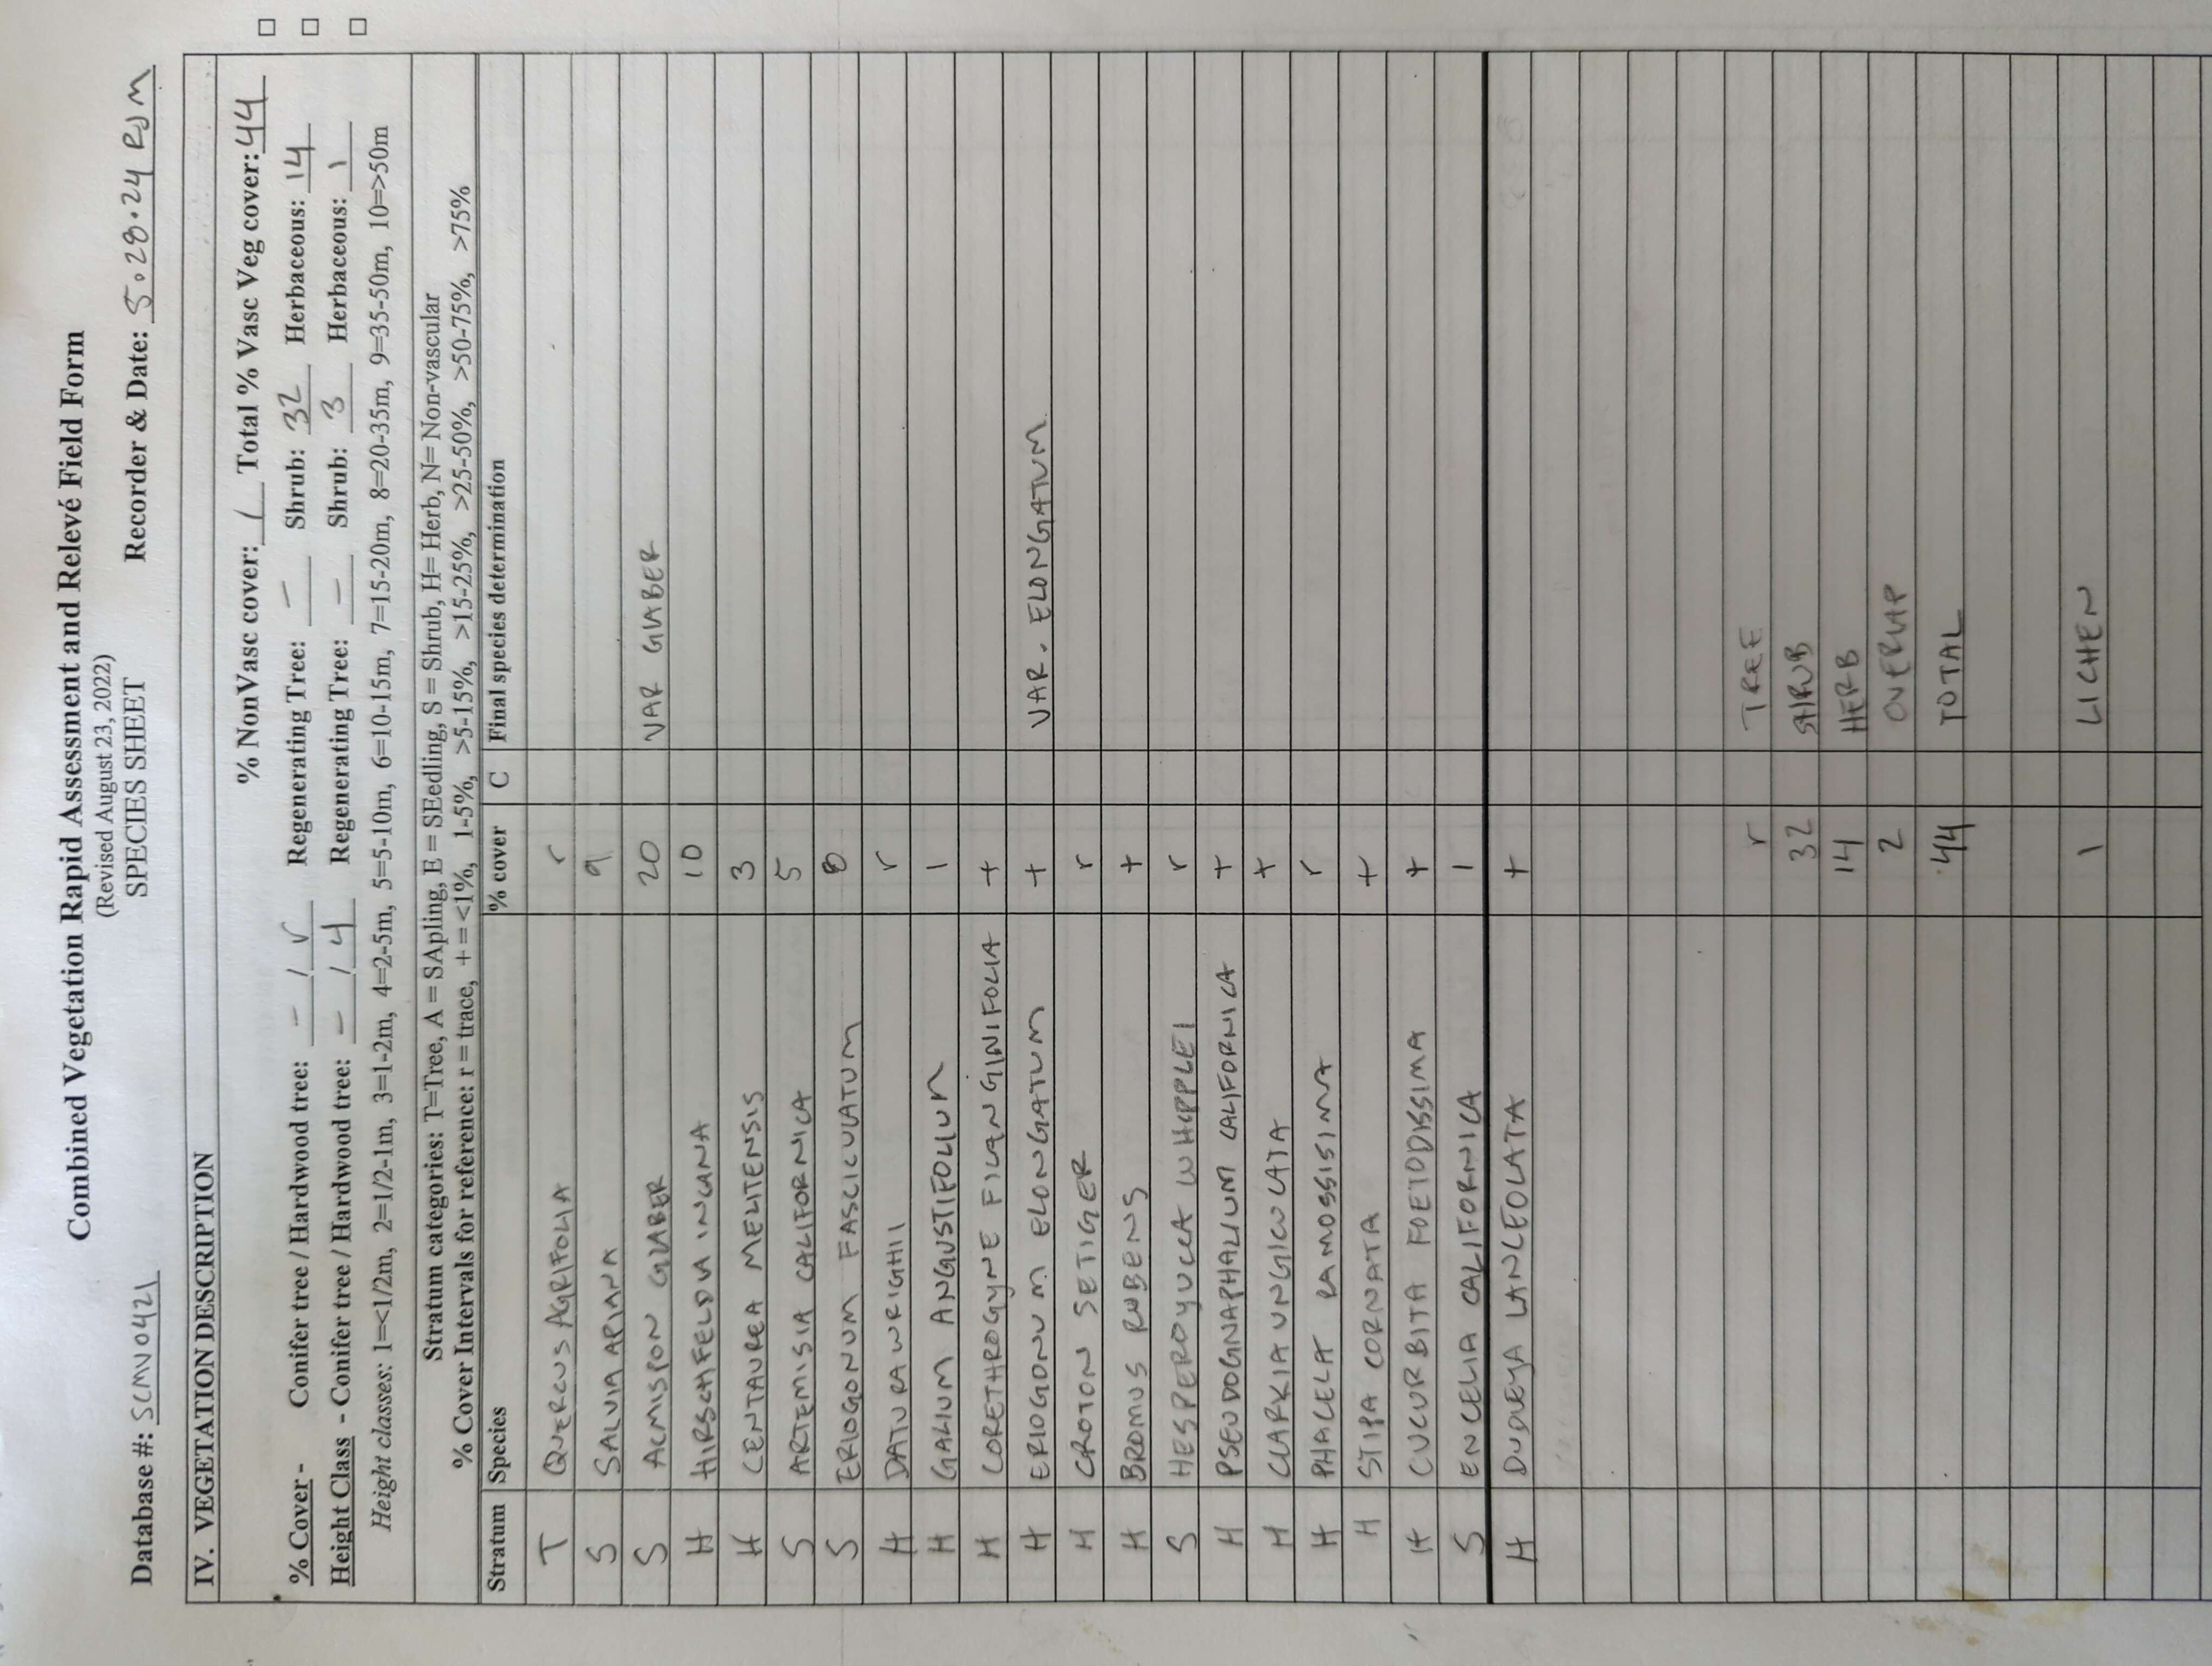 Combined Vegetation Rapid Assessment and Relevé Field Form
(Revised August 23, 2022)
Database #: SCMV0421 SPECIES SHEET Recorder & Date: 5.28.24 RJM
IV. VEGETATION DESCRIPTION
% NonVasc cover: 1 Total % Vasc Veg cover: 44 □
% Cover - Conifer tree / Hardwood tree: - / r Regenerating Tree: - Shrub: 32 Herbaceous: 14 □
Height Class - Conifer tree / Hardwood tree: - / 4 Regenerating Tree: - Shrub: 3 Herbaceous: 1 □
Height classes: 1=<1/2m, 2=1/2-1m, 3=1-2m, 4=2-5m, 5=5-10m, 6=10-15m, 7=15-20m, 8=20-35m, 9=35-50m, 10=>50m
Stratum categories: T=Tree, A = SApling, E = SEedling, S = Shrub, H= Herb, N= Non-vascular
% Cover Intervals for reference: r = trace, + = <1%, 1-5%, >5-15%, >15-25%, >25-50%, >50-75%, >75%
Stratum Species % cover C Final species determination
T QUERCUS AGRIFOLIA r
S SALVIA APIANA 9
S ACMISPON GLABER 20 VAR GLABER
H HIRSCHFELDIA INCANA 10
H CENTAUREA MELITENSIS 3
S ARTEMISIA CALIFORNICA 5
S ERIOGONUM FASCICULATUM 8
H DATURA WRIGHII r
H GALIUM ANGUSTIFOLIUM 1
H CORETHROGYNE FILANGINIFOLIA +
H ERIOGONUM ELONGATUM + VAR. ELONGATUM
H CROTON SETIGER r
H BROMUS RUBENS +
S HESPEROYUCCA WHIPPLEI r
H PSEUDOGNAPHALIUM CALIFORNICA +
H CLARKIA UNGICULATA +
H PHACELA RAMOSSISIMA r
H STIPA CORNATA +
H CUCURBITA FOETODISSIMA +
S ENCELIA CALIFORNICA 1
H DUDLEYA LANCEOLATA +
r TREE
32 SHRUB
14 HERB
2 OVERLAP
44 TOTAL
1 LICHEN